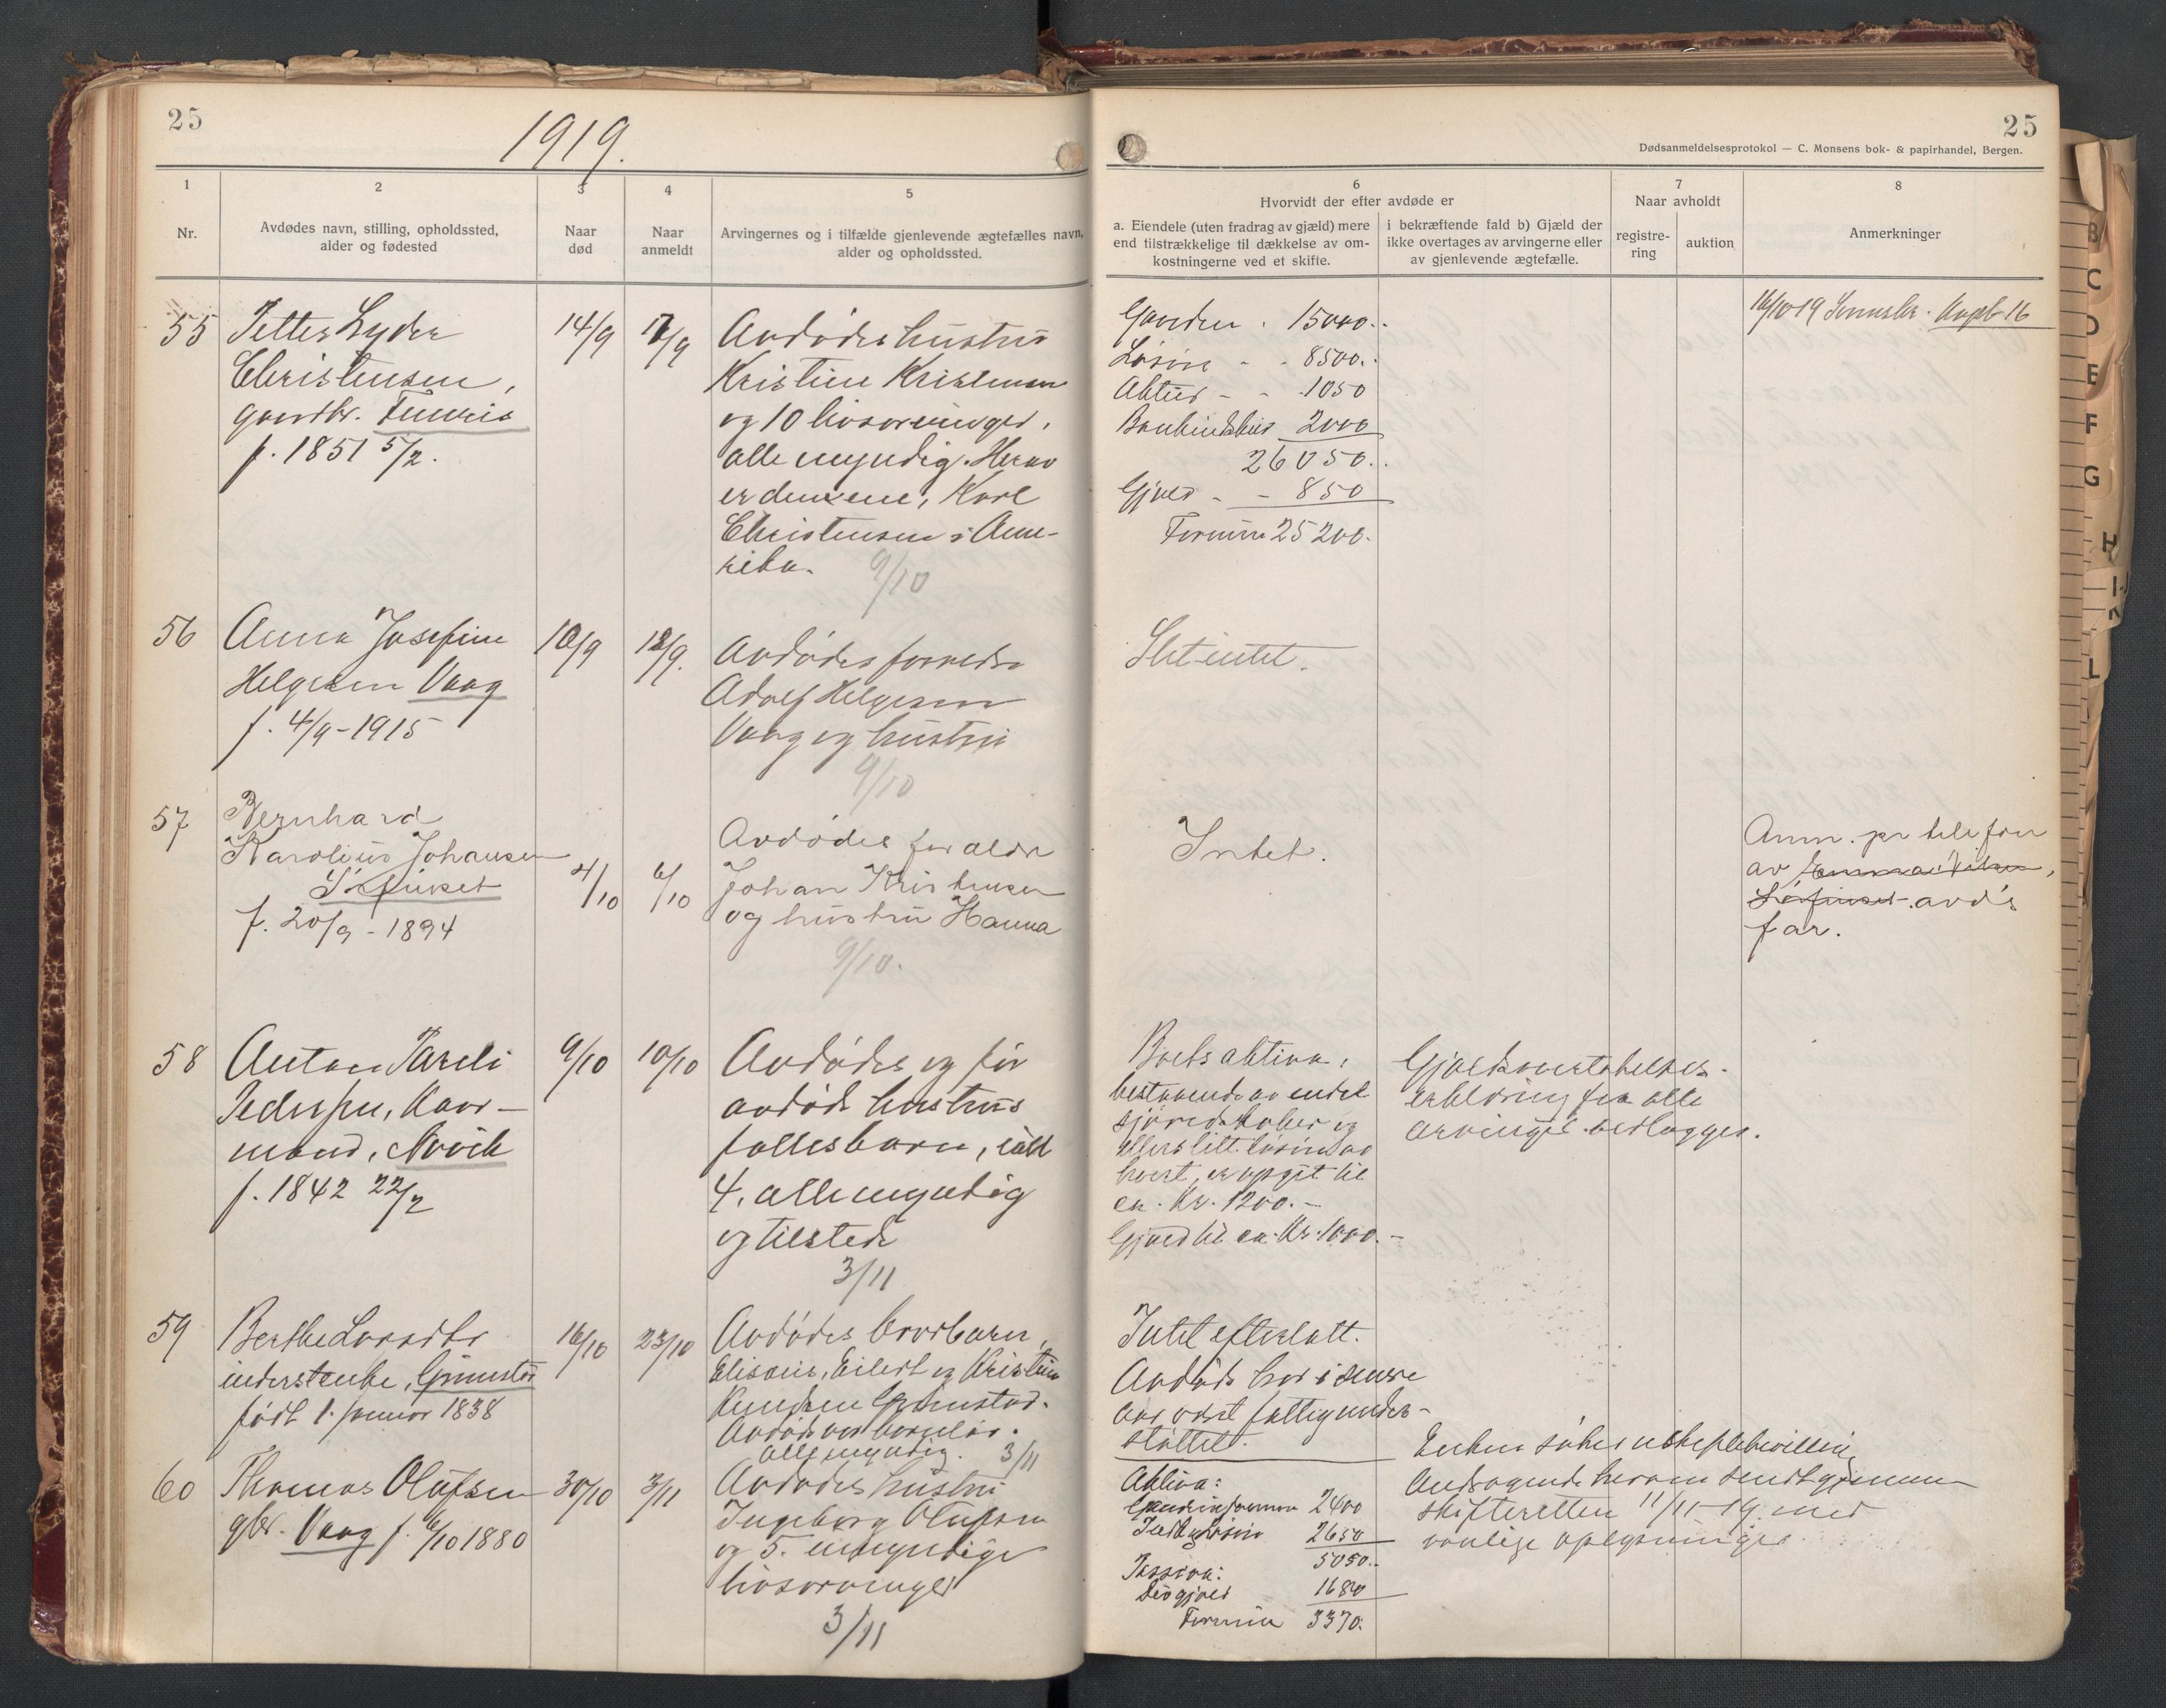 25
1919.
25
Dødsanmeldelsesprotokol — C. Monsens bok- & papirhandel, Bergen.
1
Nr.
2
Avdødes navn, stilling, opholdssted,
alder og fødested
3
Naar
død
4
Naar
anmeldt
5
Arvingernes og i tilfælde gjenlevende ægtefælles navn,
alder og opholdssted.
6
Hvorvidt der efter avdøde er
a. Eiendele (uten fradrag av gjæld) mere
end tilstrækkelige til dækkelse av om-
kostningerne ved et skifte.
i bekræftende fald b) Gjæld der
ikke overtages av arvingerne eller
av gjenlevende ægtefælle.
7
Naar avholdt
registre-
ring
auktion
8
Anmerkninger
55
Petter Lyder
Christensen,
gaardbr.
f. 1851 5/2.
14/9
17/9
Avdødes hustru
Kristine Kristensen
og 10 livsarvinger,
alle myndig. Herav
er den ene, Karl
Christensen i Ame-
rika.
9/10
Gaarden . 15000..
Løsøre - - 8500..
Aktier - - 1050
2000
26050..
Gjæld - - 850
Formue 25200.
16/10 19
56
Anna Josefine
Helgesen Vaag
f. 4/9-1915
10/9
18/9.
Avdødes forældre
Adolf Helgesen
Vaag og hustru
9/10
Slet intet.
57
Bernhard
Karolius Johansen
f. 20/9 - 1894
4/10
6/10
Avdødes forældre
Johan Kristensen
og hustru Hanna
9/10.
Intet.
Anm. pr telefon
av
avd's
far.
58
Anton Pareli
Pedersen, Kaar-
mand, Novik
f. 1842 22/2
9/10
10/10
Avdødes og før
avdøde hustrus
fællesbarn, ialt
4, alle myndig
og tilstede
3/11
Boets aktiva,
bestaaende av endel
sjøredskaber og
ellers litt løsøre av
hvert, er opgit til
ca. Kr. 1200.-
Gjæld til ca. Kr. 1000.-
Gjældsovertakelses-
erklæring fra alle
arvinger vedlægges.
59
Berthe Larsdtr
inderstenke,
født 1. januar 1838
16/10
23/10
Avdødes brorbarn,
Elisæus, Eilert og Kristine
Knudsen Grimstad.
Avdøde var barnløs.
alle myndig. 3/11
Intet efterlatt.
Avdøde har i senere
aar været fattigunder-
støttet.
60
Thomas Olufsen
gbr. Vaag f. 6/10 1880
30/10
3/11
Avdødes hustru
Ingeborg Olufsen
og 5. umyndige
livsarvinger
3/11
Aktiva:
2400
2650
5050.-
Passiva:
1680
Formue 3370.
Enken søker uskiftebevilling
Andragende herom sendt gjennem
skifteretten 11/11-19. med
vanlige oplysninger.
B
C
D
E
F
G
H
I-J
K
L